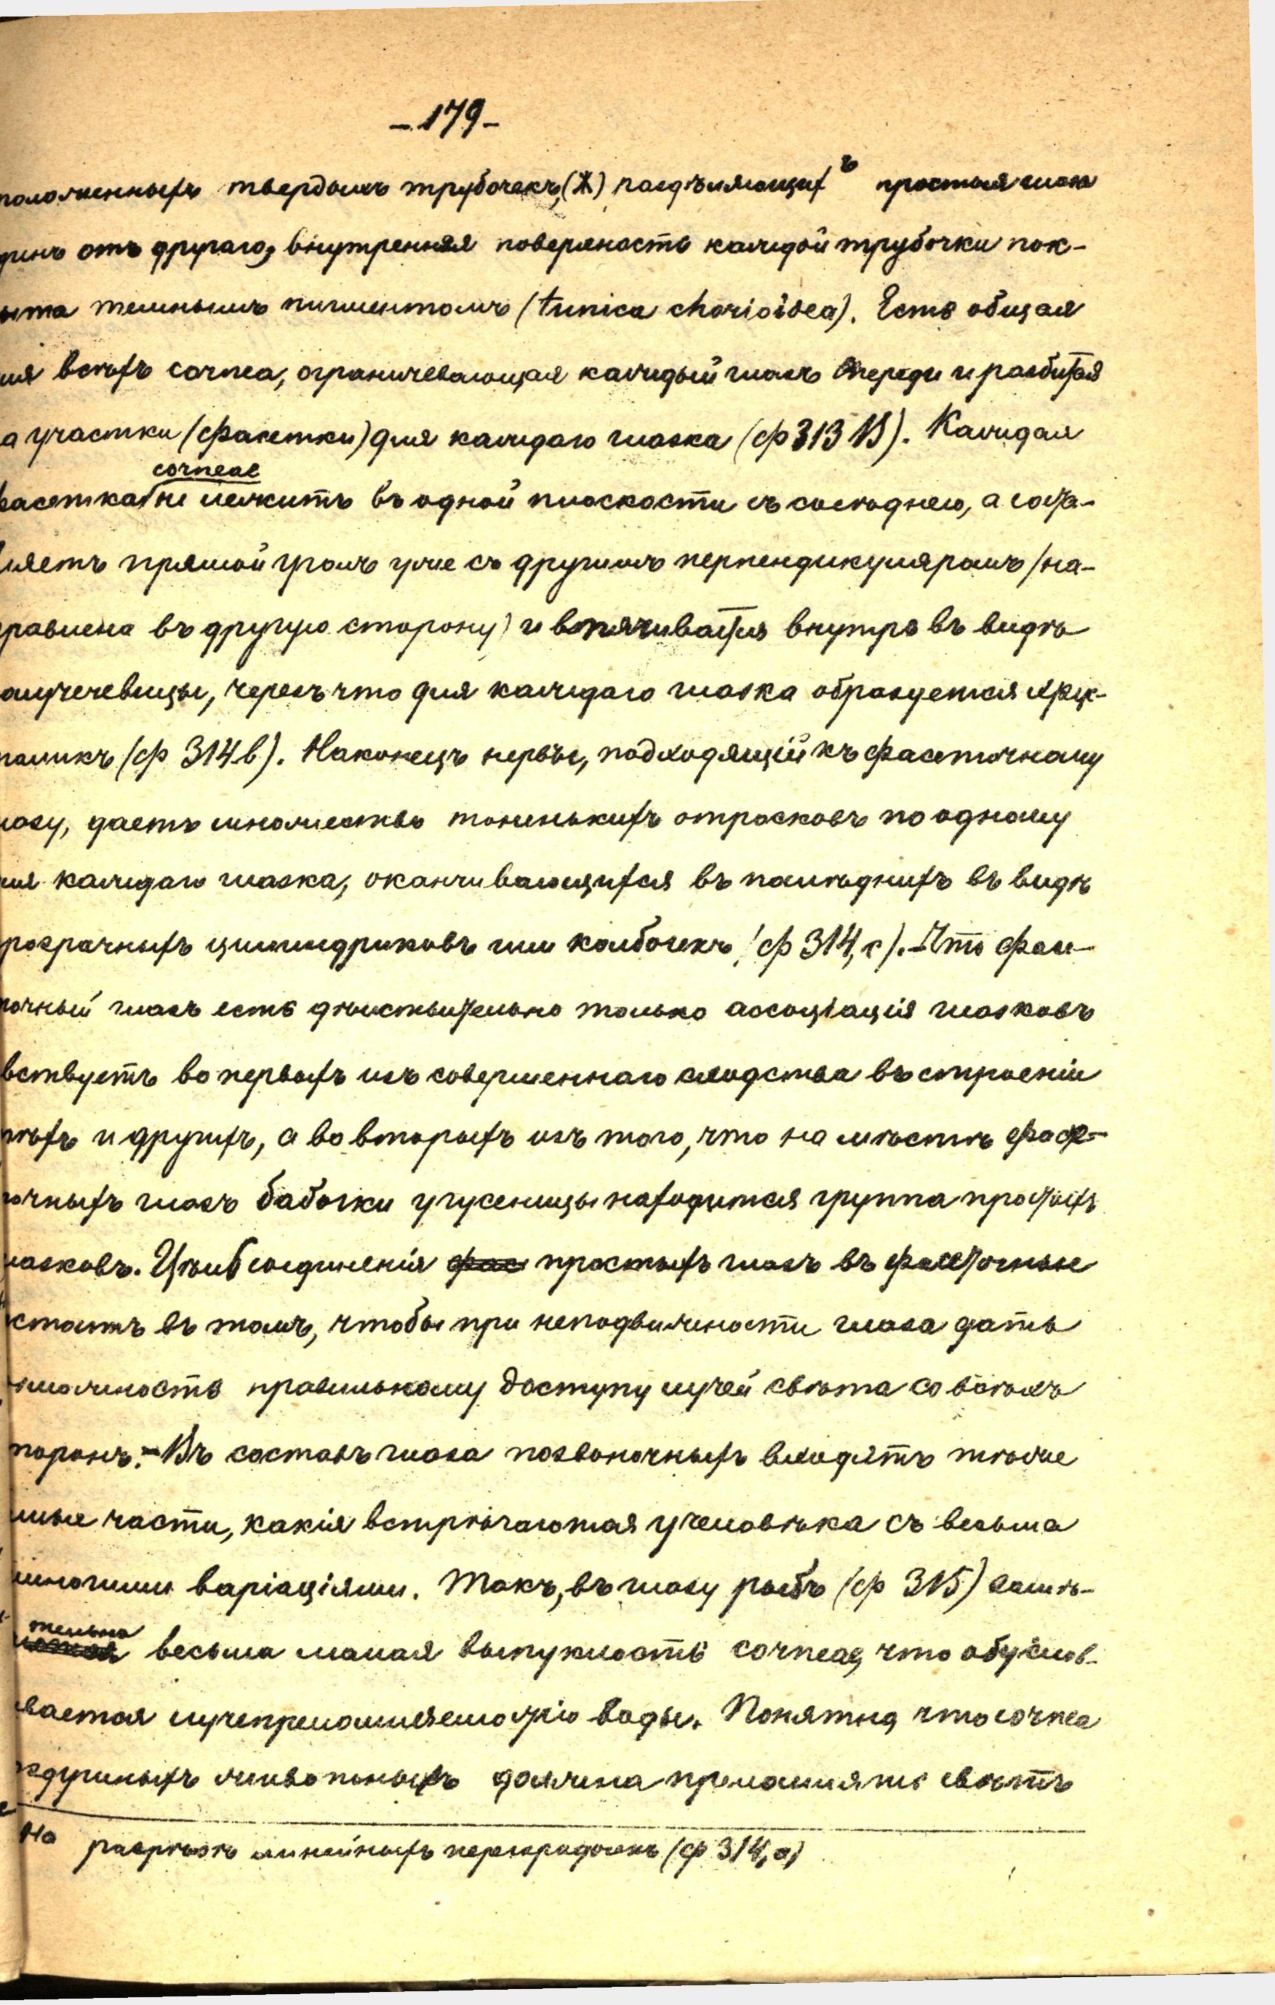 -179-
положенныхъ твердыхъ трубочекъ,(Ж) раздѣляющихъ простыя глаз
динъ отъ другаго, внутренняя поверхность каждой трубочки пок-
ыта темнымъ пигментомъ (tunica chorioidea). Есть общая
ля всѣхъ cornea, ограничевающая каждый глазъ спереди и разбитая
а участки (фасетки) для каждаго глазка (ф 313 В). Каждая
фасетка corneae не лежитъ въ одной плоскости съ сосѣднею, а соста-
вляетъ прямой уголъ уже съ другимъ перпендикуляромъ (на-
равлена въ другую сторону) и впячивается внутрь въ видѣ
олучечевицы, черезъ что для каждаго глазка образуется хрус-
таликъ (ф 314 в). Наконецъ нервъ, подходящій къ фасеточному
лазу, даетъ множество тоненькихъ отростковъ по одному
ля каждаго глазка, оканчивающихся въ послѣднихъ въ видѣ
розрачныхъ цилиндриковъ или колбочекъ (ф 314, с). - Что фасе-
точный глазъ есть дѣйствительно только ассоціація глазковъ
вствуетъ во первыхъ изъ совершеннаго сходства въ строеніи
тѣхъ и другихъ, а во вторыхъ изъ того, что на мѣстѣ фасе-
очныхъ глазъ бабочки у гусеницы находится группа простыхъ
лазковъ. Цѣль соединенія фас простыхъ глазъ въ фасеточные
стоитъ въ томъ, чтобы при неподвижности глаза дать
зможность правильному доступу лучей свѣта со всѣхъ
торонъ. - Въ составъ глаза позвоночныхъ входятъ тѣже
амые части, какія встрѣчаются у человѣка съ весьма
многими варіаціями. Такъ, въ глазу рыбъ (ф 315) замѣ-
тельна весьма малая выпуклость corneae, что обуслов-
ивается лучепреломляемостію воды. Понятно, что cornea
оздушныхъ животныхъ должна преломлять свѣтъ
На разрѣзѣ линейныхъ перегородокъ (ф 314, а)